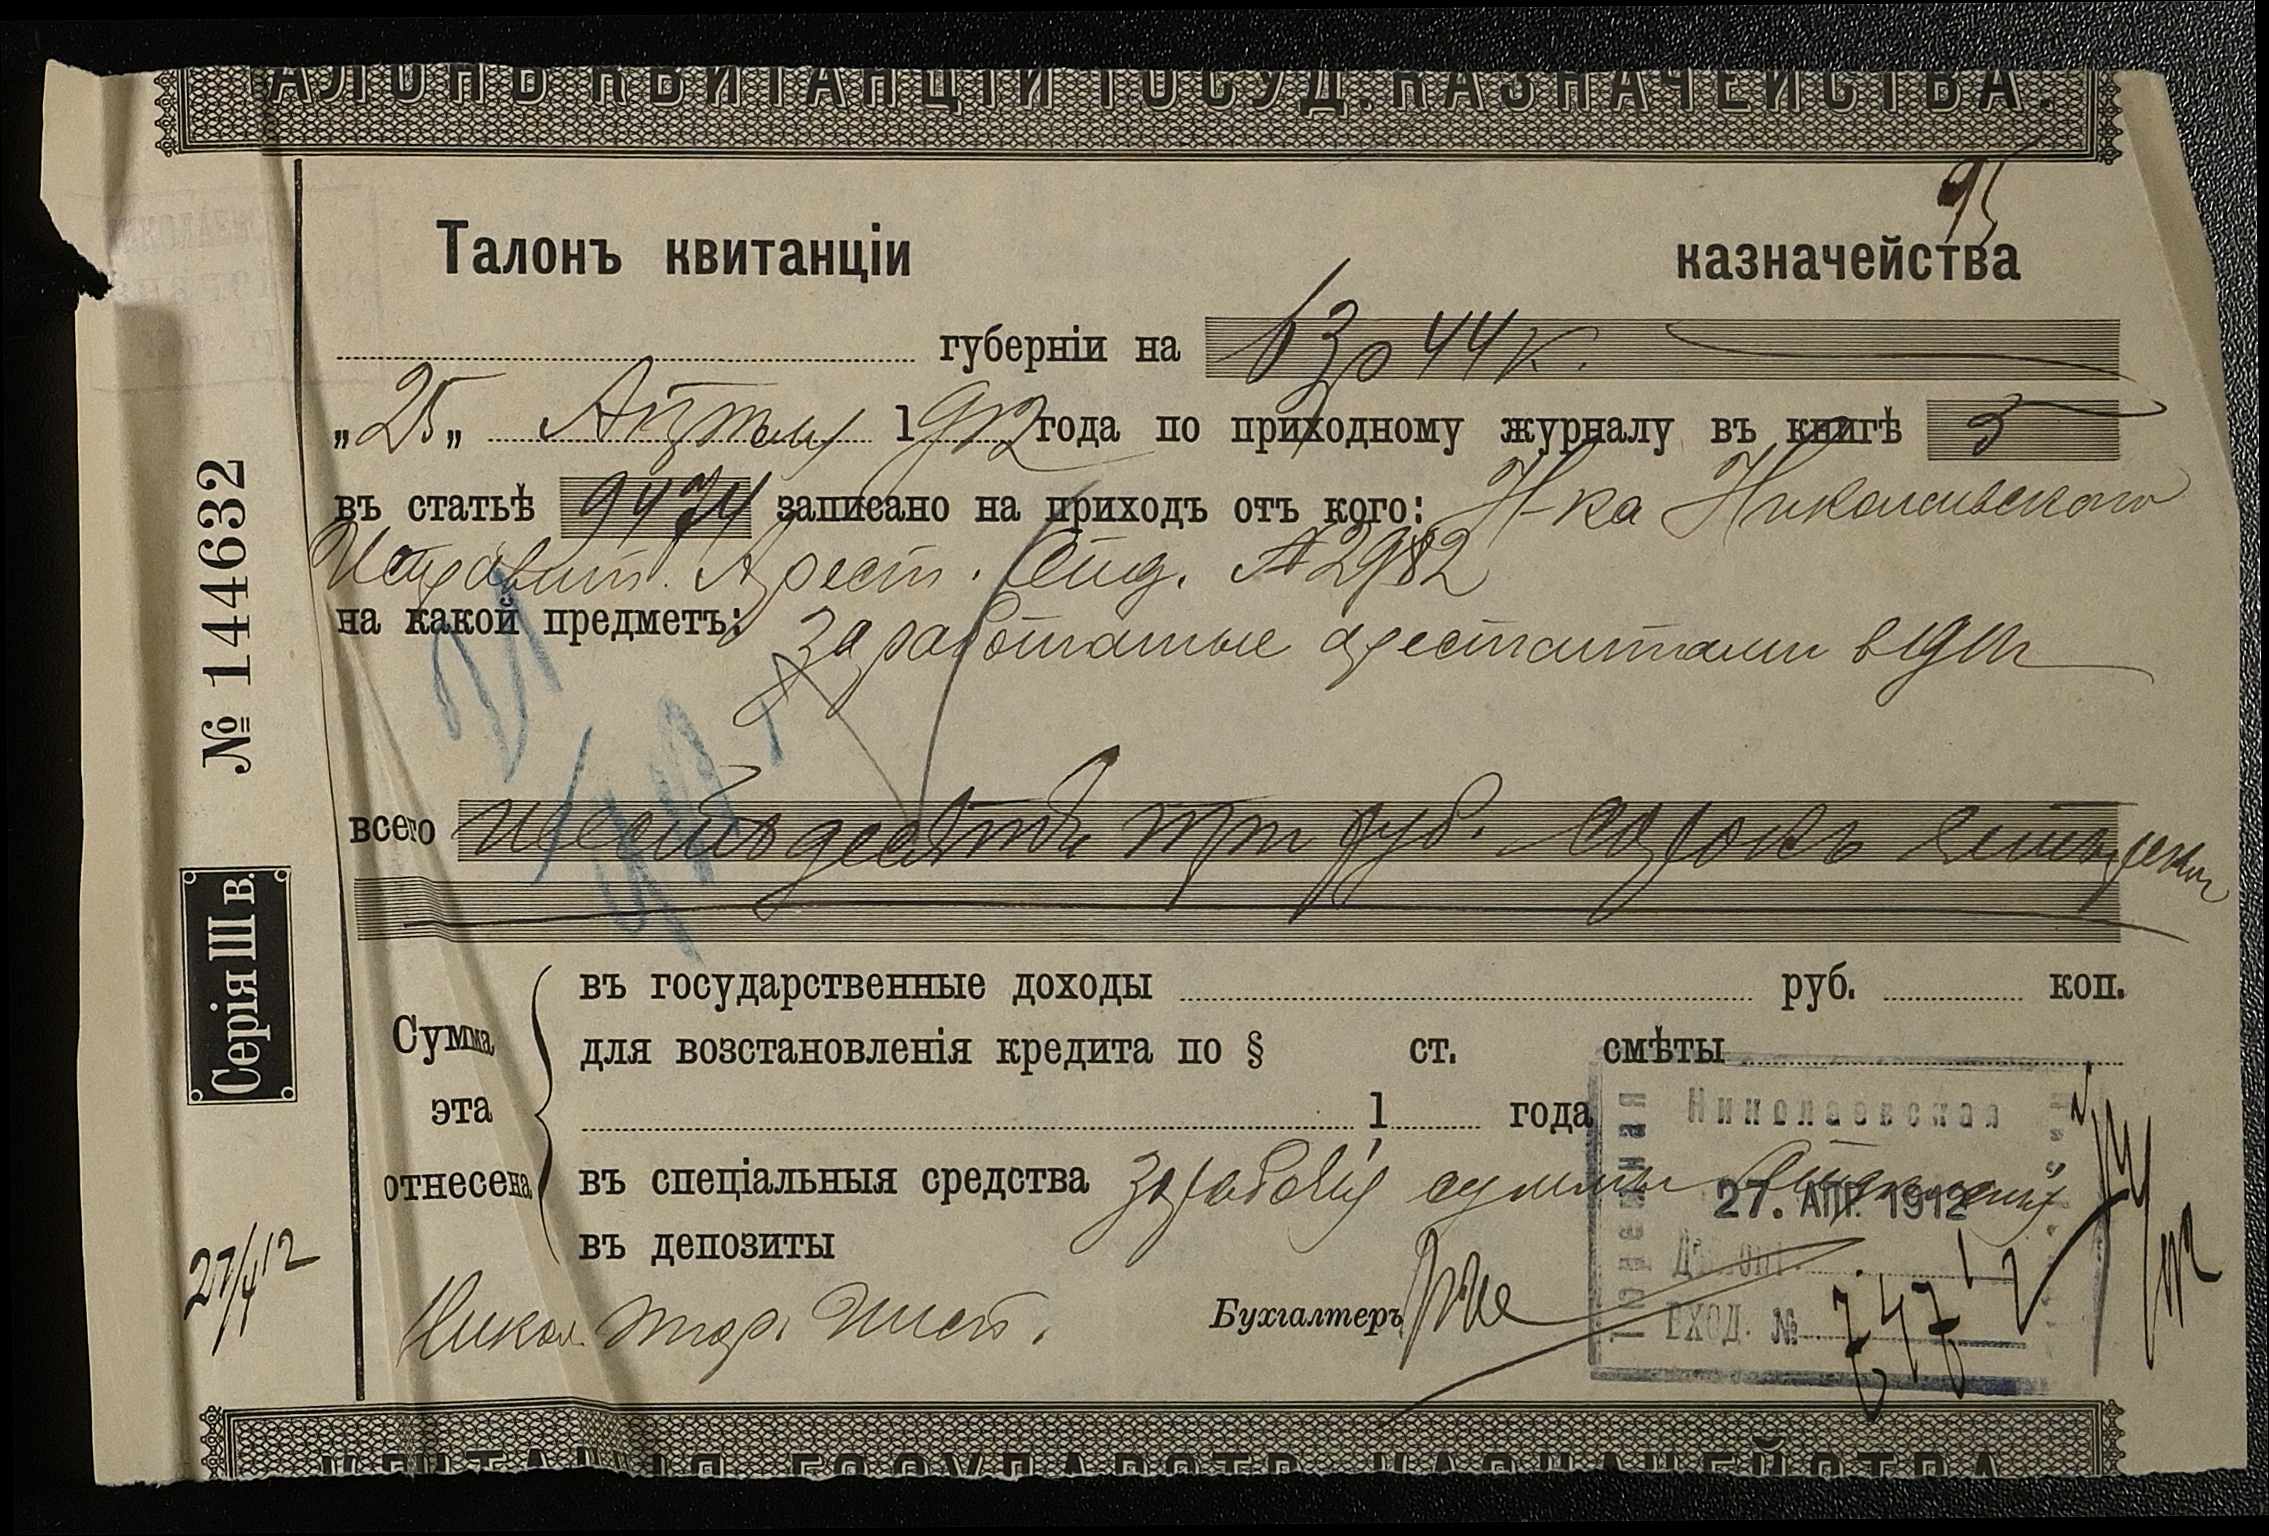 АЛОНЪ КВИТАНЦІИ ГОСУД. КАЗНАЧЕЙСТВА.
95
Талонъ квитанціи казначейства
губерніи на 63 р 44 к.
„25„ Апрѣля 1912 года по приходному журналу въ книгѣ 5
въ статьѣ 9474 записано на приходъ отъ кого: Н-ка Николаевского
Исправит. Арест. Отд. № 2982
на какой предметъ: заработанные арестантами
всего шестьдесятъ три руб. сорокъ четыре коп
Сумма эта отнесена
въ государственные доходы руб. коп.
для возстановленія кредита по § ст. смѣты
1 года
въ спеціальныя средства
въ депозиты
Бухгалтеръ
№ 144632
Серія III в.
27/4 12
Николаевская
27. АПР. 1912
ВХОД. №
КВИТАНЦІЯ ГОСУДАРСТВ. КАЗНАЧЕЙСТВА